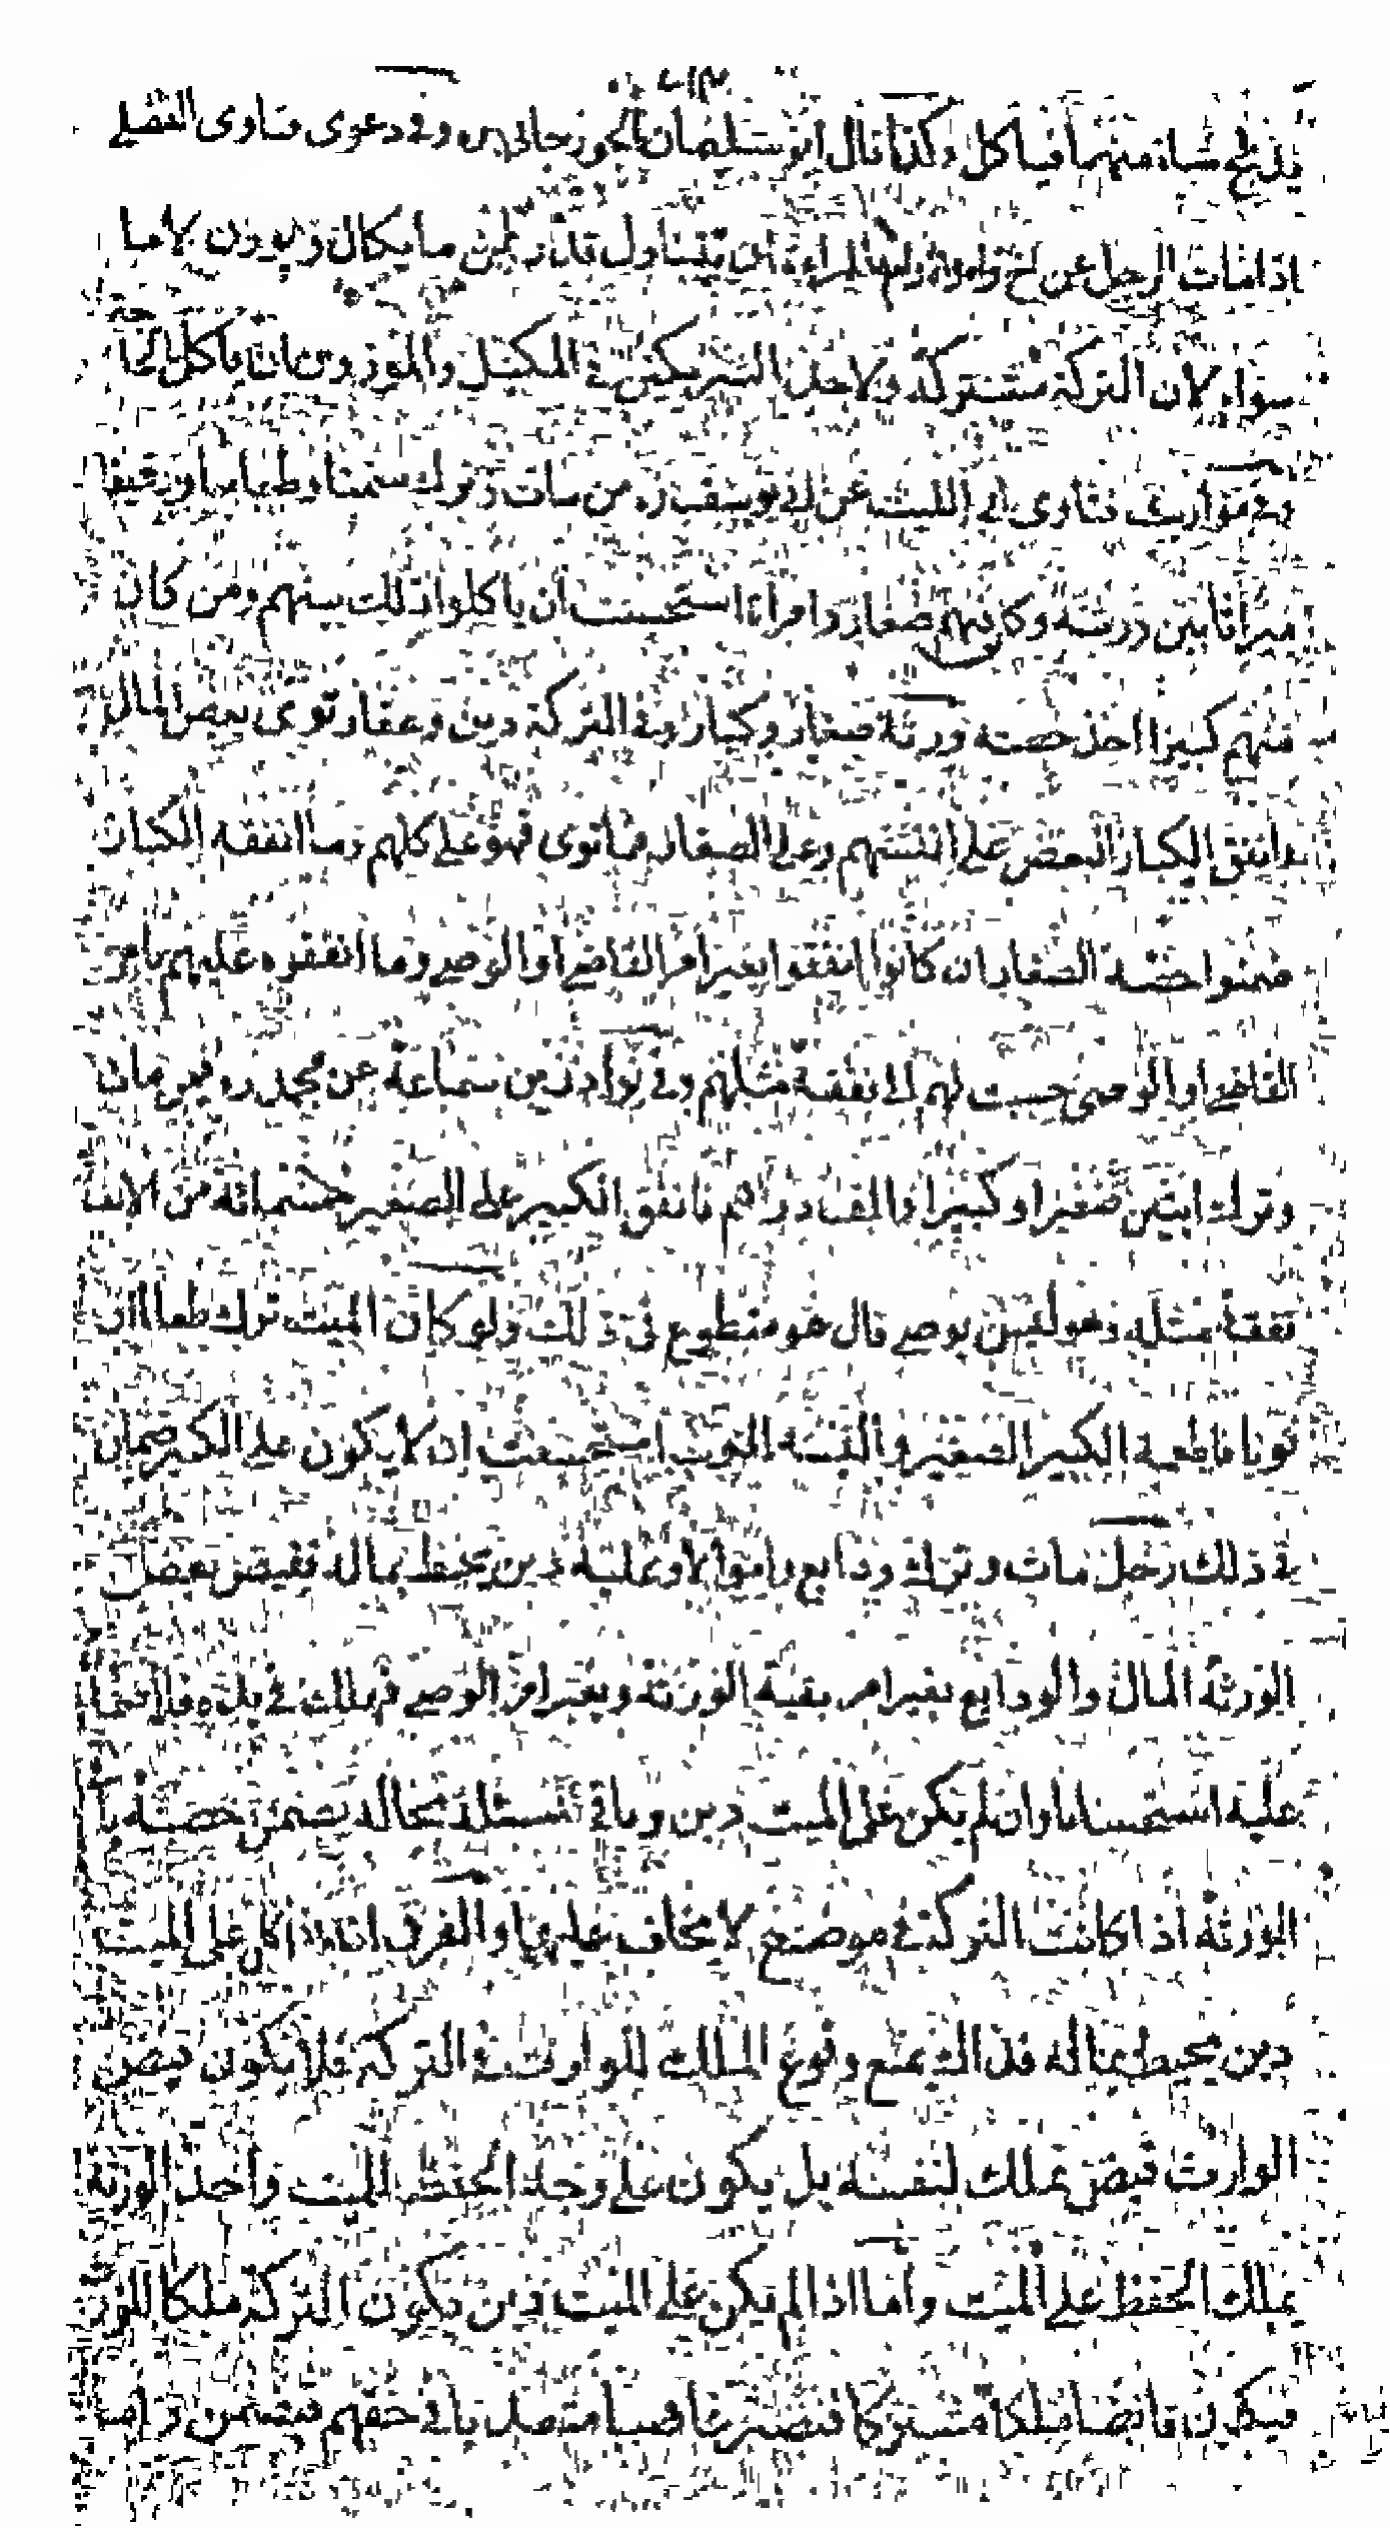 يذبح شاة منهما فيأكل وكذا قال ابو سليمان الجوزجاني وفي دعوى فتاوى الفضلي
اذا مات الرجل عن اخ وامراة للمراءة ان تتناول قدر الثمن مما يكال ويوزن لا ما
سواه لان التركة مشتركة ولاحد الشريكين في المكيل والموزون ان ياكل
وفي مواريث فتاوى ابي الليث عن ابي يوسف ره من مات وترك سمنا وطعاما ودقيقا
ميراثا بين ورثته وكان فيهم صغار وامراءة استحسنت ان ياكلوا ذلك بينهم ومن كان
منهم كبيرا اخذ حصته ورثة صغار وكبار وفي التركة دين وعقار توى بعض المال
وانفق الكبار البعض على انفسهم وعلى الصغار فما توى فهو على كلهم وما انفقه الكبار
ضمنوا حصة الصغار ان كانوا انفقوا بغير امر القاضي او الوصي وما انفقوه عليهم بامر
القاضي او الوصي حسبت لهم الى نفقة مثلهم وفي نوادر بن سماعة عن محمد ره فيمن مات
وترك ابنين صغيرا وكبيرا والف درهم فانفق الكبير على الصغير خمسمائة من الالف
نفقة مثله وهو ليس بوصي قال هو متطوع في ذلك ولو كان الميت ترك طعاما او
ثوبا فاطعمه الكبير الصغير والبسه الثوب استحسنت ان لا يكون على الكبير ضمان
في ذلك رجل مات وترك ودايع واموالا وعليه دين يحيط بماله فقبض بعض
الورثة المال والودايع بغير امر بقية الورثة وبغير امر الوصي فهلك في يده فلا ضمان
عليه استحسانا وان لم يكن على الميت دين وباقي المسئلة بحاله يضمن حصة باقي
الورثة اذا كانت التركة في موضع لا يخاف عليها والفرق انه اذا كان على الميت
دين محيط بماله فذاك يمنع وقوع الملك للوارث في التركة فلا يكون قبض
الوارث قبض تملك لنفسه بل يكون على وجه الحفظ للميت واحد الورثة
يملك الحفظ على الميت واما اذا لم يكن على الميت دين تكون التركة ملكا للورثة
فيكون قابضا ملكا مشتركا فيصير غاصبا متصلا باقي حقهم فيضمن واما